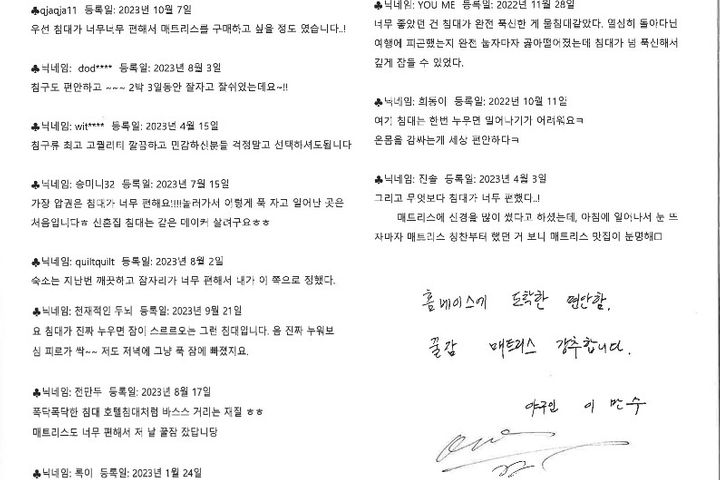 ♣qjaqja11 등록일: 2023년 10월 7일
우선 침대가 너무너무 편해서 매트리스를 구매하고 싶을 정도 였습니다..!
♣닉네임: dod**** 등록일: 2023년 8월 3일
침구도 편안하고 ~~~ 2박 3일동안 잘자고 잘쉬었는데요~!!
♣닉네임: wit**** 등록일: 2023년 4월 15일
침구류 최고 고퀄리티 깔끔하고 민감하신분들 걱정말고 선택하셔도됩니다
♣닉네임: 승미니32 등록일: 2023년 7월 15일
가장 압권은 침대가 너무 편해요!!!!놀러가서 이렇게 푹 자고 일어난 곳은
처음입니다ㅎ 신혼집 침대는 같은 메이커 살려구요ㅎㅎ
♣닉네임: quiltquilt 등록일: 2023년 8월 2일
숙소는 지난번 깨끗하고 잠자리가 너무 편해서 내가 이 쪽으로 정했다.
♣닉네임: 천재적인 두뇌 등록일: 2023년 9월 21일
요 침대가 진짜 누우면 잠이 스르르오는 그런 침대입니다. 옴 진짜 누워보
심 피로가 싹~~ 저도 저녁에 그냥 푹 잠에 빠졌지요.
♣닉네임: 전판두 등록일: 2023년 8월 17일
폭닥폭닥한 침대 호텔침대처럼 바스스 거리는 재질 ㅎㅎ
매트리스도 너무 편해서 저 날 꿀잠 잤답니당
♣닉네임: 록이 등록일: 2023년 1월 24일
♣닉네임: YOU ME 등록일: 2022년 11월 28일
너무 좋았던 건 침대가 완전 푹신한 게 물침대같았다. 열심히 돌아다닌
여행에 피곤했는지 완전 눕자마자 곯아떨어졌는데 침대가 넘 푹신해서
깊게 잠들 수 있었다.
♣닉네임: 희동이 등록일: 2022년 10월 11일
여기 침대는 한번 누우면 일어나기가 어려워요ㅋ
온몸을 감싸는게 세상 편안하다ㅋ
♣닉네임: 진솔 등록일: 2023년 4월 3일
그리고 무엇보다 침대가 너무 편했다..!
매트리스에 신경을 많이 썼다고 하셨는데, 아침에 일어나서 눈 뜨
자마자 매트리스 칭찬부터 했던 거 보니 매트리스 맛집이 분명해□
홈베이스에 도착한 편안함.
꿀잠 매트리스 강추합니다.
야구인 이만수